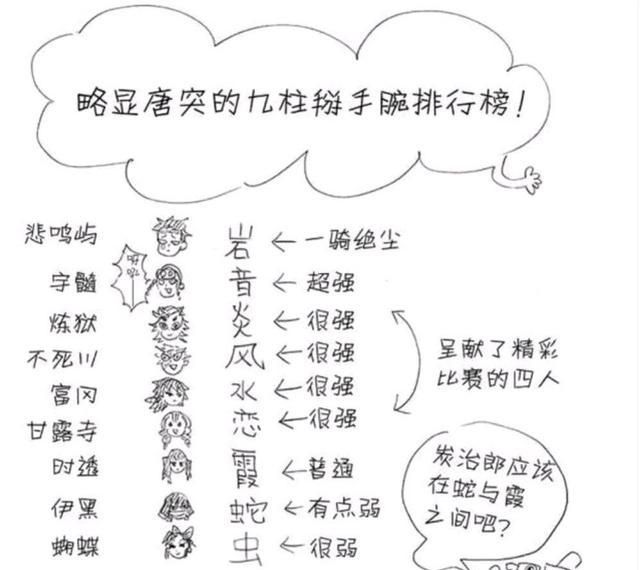 略显唐突的九柱掰手腕排行榜!
悲鸣屿 岩 ←一骑绝尘
宇髓 音 ←超强
炼狱 炎 ←很强
不死川 风 ←很强
富冈 水 ←很强
甘露寺 恋 ←很强
时透 霞 ←普通
伊黑 蛇 ←有点弱
蝴蝶 虫 ←很弱
呈献了精彩
比赛的四人
炭治郎应该
在蛇与霞
之间吧?